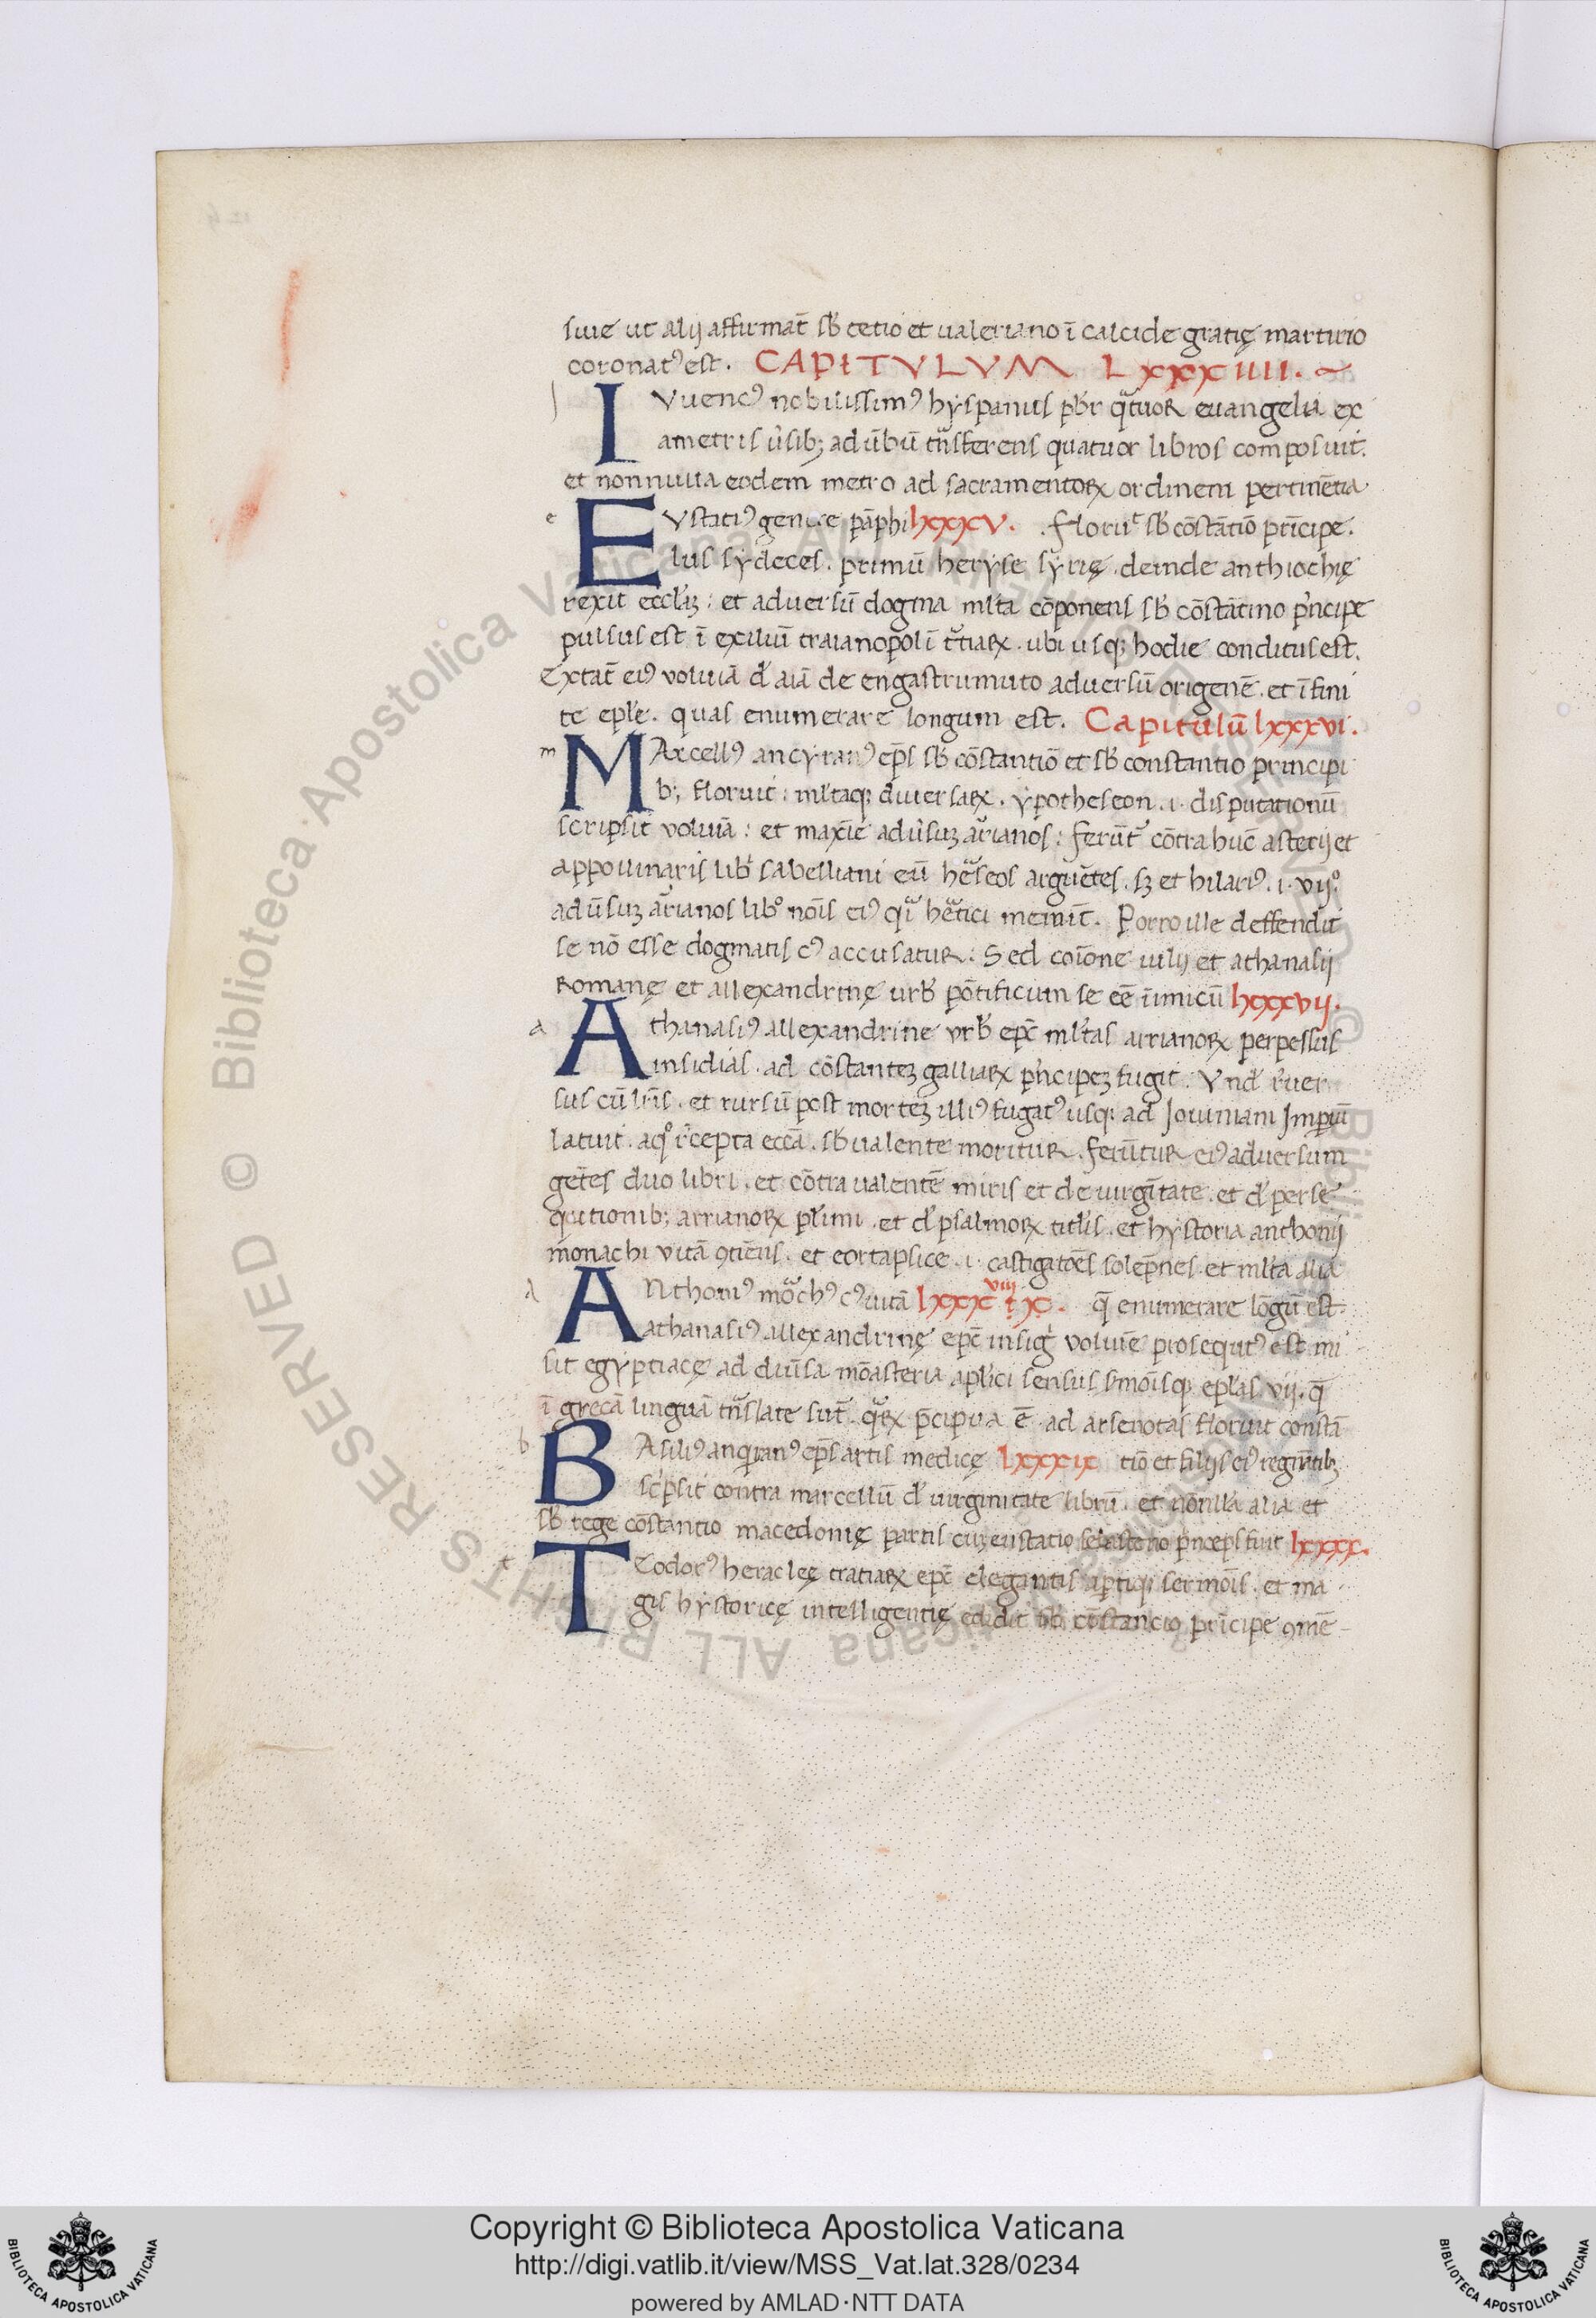 siue ut alij affirmāt sƀ cetio et ualeriano ī calcide gratię martirio
coronatꝰ est. CAPITVLVM LXXXIIII.
I Vuencꝰ nobilissimꝰ hyspanus pbr qͣtuor euangelia ex
ametris ūsib; ad ūbū tnͣsferens quatuor libros composuit.
et nonnulla eodem metro ad sacramentoꝝ ordinem pertinētia
e EVstatiꝰ genere pāphi lxxxv. . Floruͭ sƀ cōstātio prīcipe.
lus sydeces. primū heryse syrię. deinde anthiochię
rexit eccliaꝫ: et aduersū dogma mlta cōponens sƀ cōstātino pͥncipe
pulsus est ī exiliū traianopolī tͣtiaꝝ. ubi usqꝫ hodie conditus est.
Extāt eiꝰ voluīa đ aīa de engastrumuto aduersū origenē. et īfini
te eple. quas enumerare longum est. Capitulū lxxxvi.
m MArcellꝰ ancyranꝰ eps sƀ cōstantio et sƀ constantio principi
b; floruit: mltaqꝫ diuersaꝝ. ypotheseon. i. disputationū
scripsit voluīa: et maxīe adūsuꝫ arianos: ferūt cōtra hūc asterij et
appollinaris libͥ sabelliani eū heͣseos arguētes. sꝫ et hilariꝰ. i. vijͦ.
adūsuꝫ arianos libͦ noīs eiꝰ qͣi heͣtici meminit. Porro ille deffendit
se nō esse dogmatis cꝰ accusatur: Sed coīone iulij et athanasij
Romanę et allexandrinę urƀ pōtificum se eē inimicū lxxxvij.
a AthanasiꝰAllexandrine vrƀ epc mltas arrianoꝝ perpessus
insidias. ad cōstanteꝫ galliaꝝ pͥncipeꝫ fugit. Vnđ reuer
sus cū lris. et rursū post morteꝫ illiꝰ fugatꝰ usqꝫ ad Jouiniani Imperiū
latuit. aqͦ recepta eccā. sƀ ualente moritur. ferūtur eiꝰ aduersum
gētes duo libri. et cōtra ualentē miris et de uirgītate. et đ perse
qutionib; arrianoꝝ plimi. et đ psalmoꝝ titlis. et hystoria anthonij
monachi vitā ꝯtinens. et eortapsice. i. castigatoēs solepnes. et mlta alia
a ANthoniꝰ moͣchꝰ cꝰ uitā lxxxviij t ix. q̄ enumerare lōgū est.
athanasiꝰ allexandrinę epc insigͥ voluīe prosequtꝰ est mi
sit egyptiacę ad diuersa mōasteria aplici sensus smoīsqꝫ eplas. vij. q̄
ī grecā linguā tnͣslate sūt. qͣꝝ pͥcipua ē. ad arsenotas floruit constā
b BAsiliꝰ anqiranꝰ eps artis medicę lxxxix tio et filijs eiꝰ regnātib;
scͥpsit contra marcellū đ uirginitate librū. et nōnlla alia et
sƀ rege cōstantio macedonię partis cuꝫ eustatio sebasteno pͥnceps fuit lxxxx.
t TEodorꝰ heraclęę tratiaꝝ epc elegantis aptiqꝫ sermoīs. et ma
gis hystoricę intelligentię edidit sƀ cōstancio prīcipe ꝯmē
Copyright © Biblioteca Apostolica Vaticana
http://digi.vatlib.it/view/MSS_Vat.lat.328/0234
powered by AMLAD·NTT DATA
BIBLIOTECA APOSTOLICA VATICANA
BIBLIOTECA APOSTOLICA VATICANA
© Biblioteca Apostolica Vaticana ALL RIGHTS RESERVED